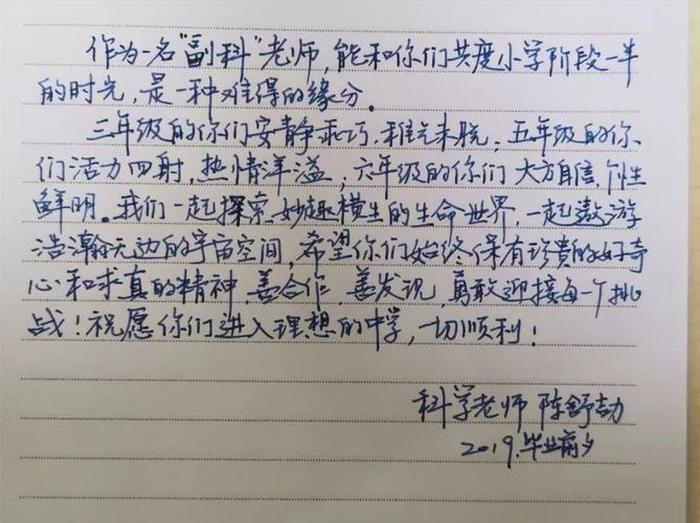 作为一名"副科"老师,能和你们共度小学阶段一半
的时光,是一种难得的缘分。
三年级的你们安静乖巧、稚气未脱;五年级的你
们活力四射,热情洋溢;六年级的你们大方自信,个性
鲜明。我们一起探索妙趣横生的生命世界,一起遨游
浩瀚无边的宇宙空间,希望你们始终保有珍贵的好奇
心和求真的精神,善合作,善发现,勇敢迎接每一个挑
战!祝愿你们进入理想的中学,一切顺利!
科学老师 陈舒
2019.毕业前夕